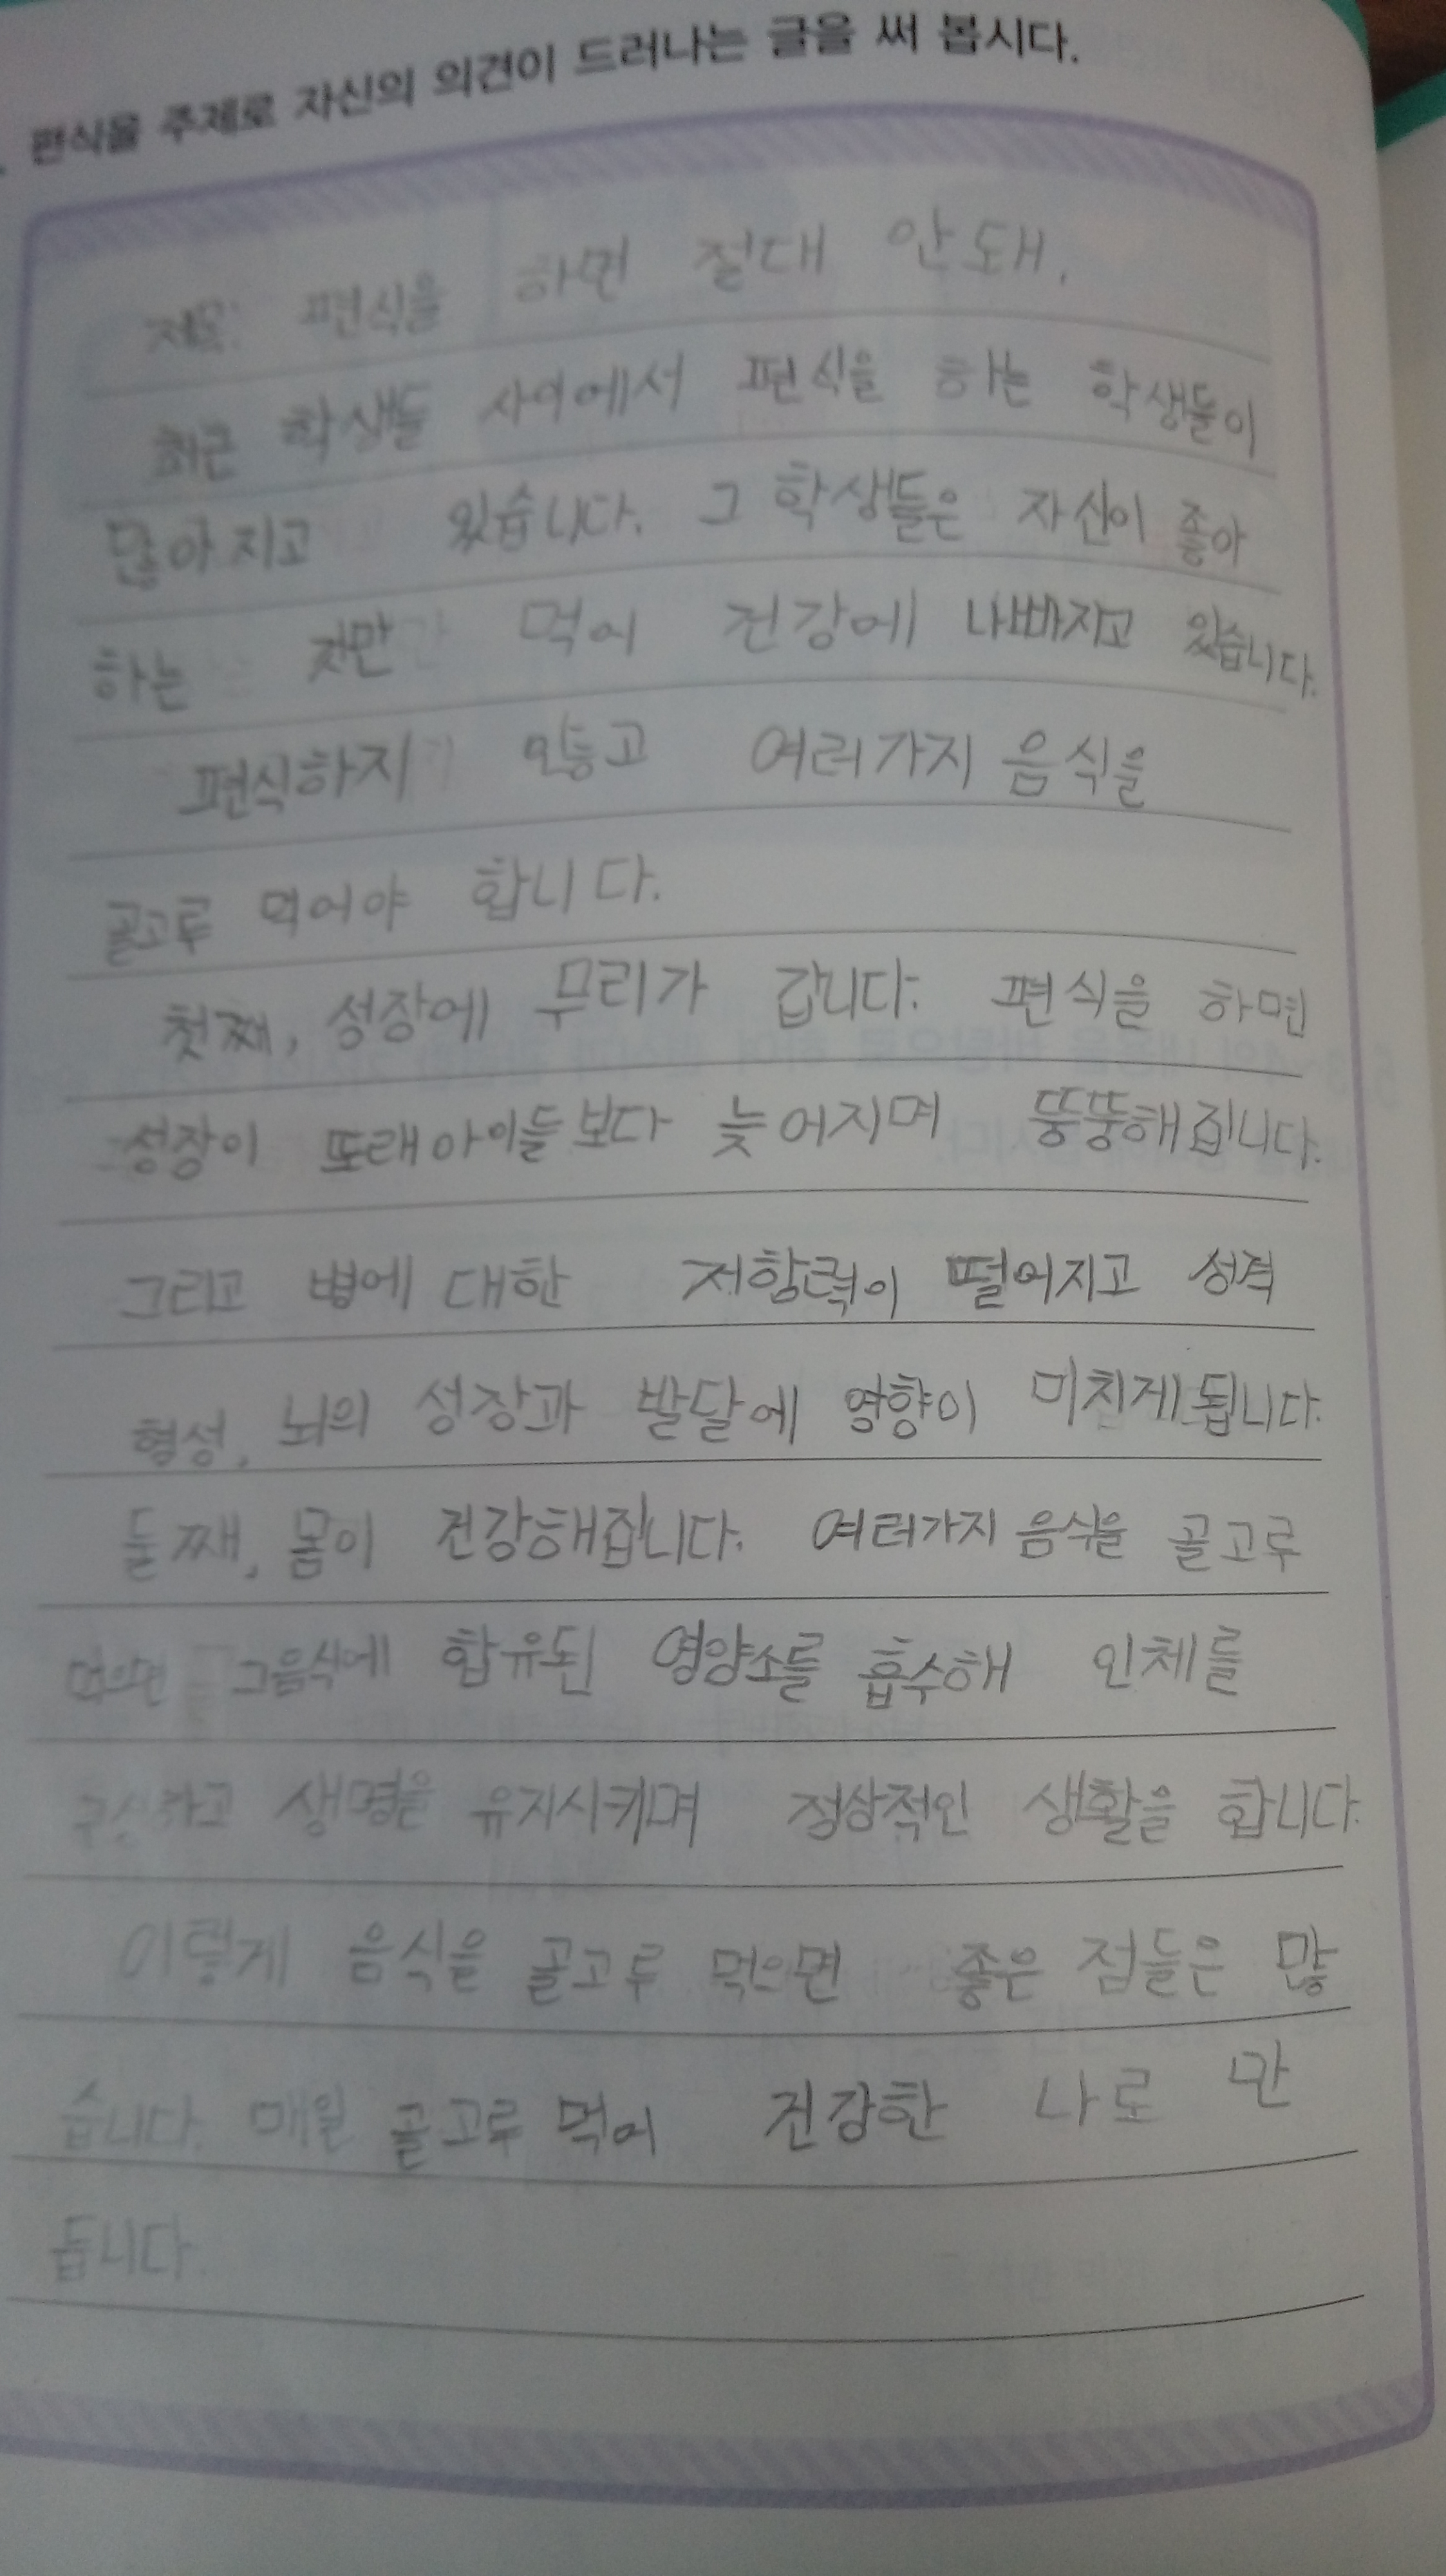 편식을 주제로 자신의 의견이 드러나는 글을 써 봅시다.
제목: 편식을 하면 절대 안돼.
최근 학생들 사이에서 편식을 하는 학생들이
많아지고 있습니다. 그 학생들은 자신이 좋아
하는 것만 먹어 건강에 나빠지고 있습니다.
편식하지 않고 여러가지 음식을
골고루 먹어야 합니다.
첫째, 성장에 무리가 갑니다. 편식을 하면
성장이 또래아이들보다 늦어지며 뚱뚱해집니다.
그리고 병에 대한 저항력이 떨어지고 성격
형성, 뇌의 성장과 발달에 영향이 미친게됩니다.
둘째, 몸이 건강해집니다. 여러가지 음식을 골고루
먹으면 그음식에 함유된 영양소를 흡수해 인체를
생명을 유지시키며 정상적인 생활을 합니다.
이렇게 음식을 골고루 먹으면 좋은 점들은 많
습니다. 매일 골고루 먹어 건강한 나로 만
듭니다.